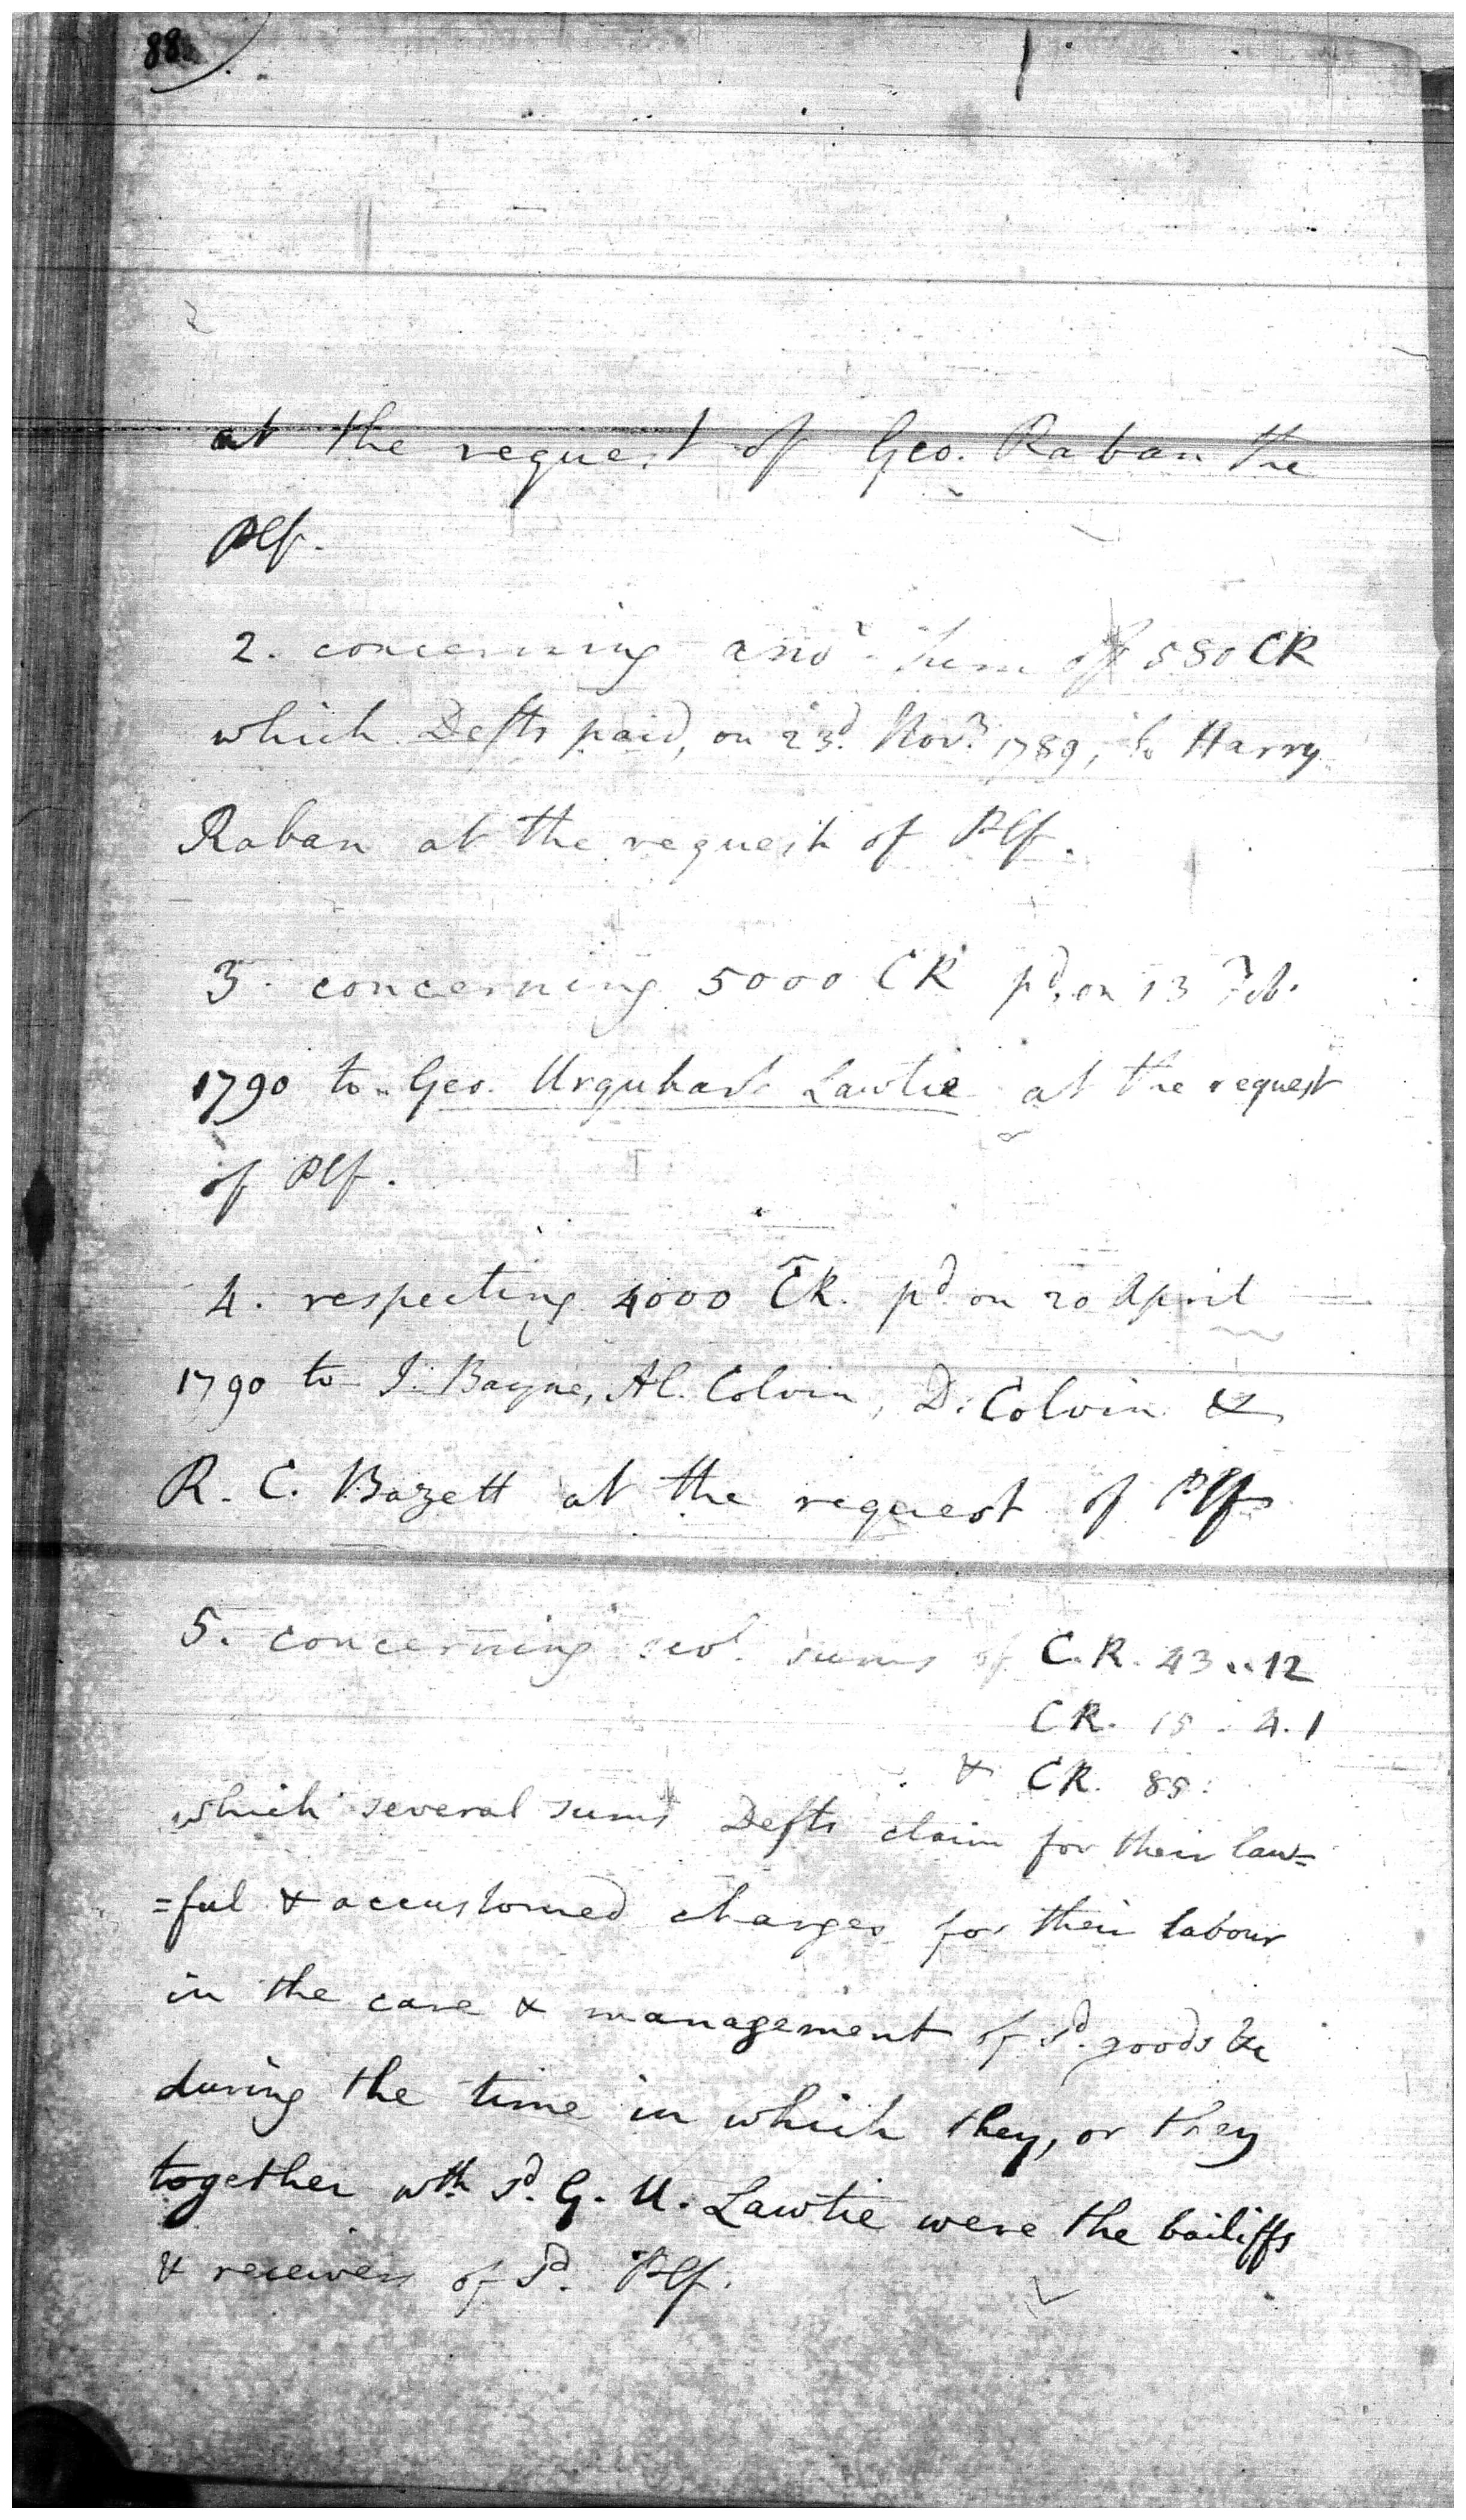 88
at the request of Geo. Raban the
Plf.
2. concerning anor sum of 580 CR
which Defts paid, on 23d. Novr. 1789, to Harry
Raban at the request of Plf.
3. concerning 5000 CR pd. on 13 Feb.
1790 to Geo. Urquhart Lawtie at the request
of Plf.
4. respecting 4000 CR. pd. on 20 April
1790 to J. Bayne, Al. Colvin, D. Colvin &
R. C. Bazett at the request of Plf
5. concerning sevl. sums of C.R. 43..12
CR. 15. 4.1
& CR. 85:
which several sums Defts claim for their law=
=ful & accustomed charges for their labour
in the care & management of sd. goods &c
during the time in which they, or they
together wth sd. G. U. Lawtie were the bailiffs
& receivers of sd. Plf.